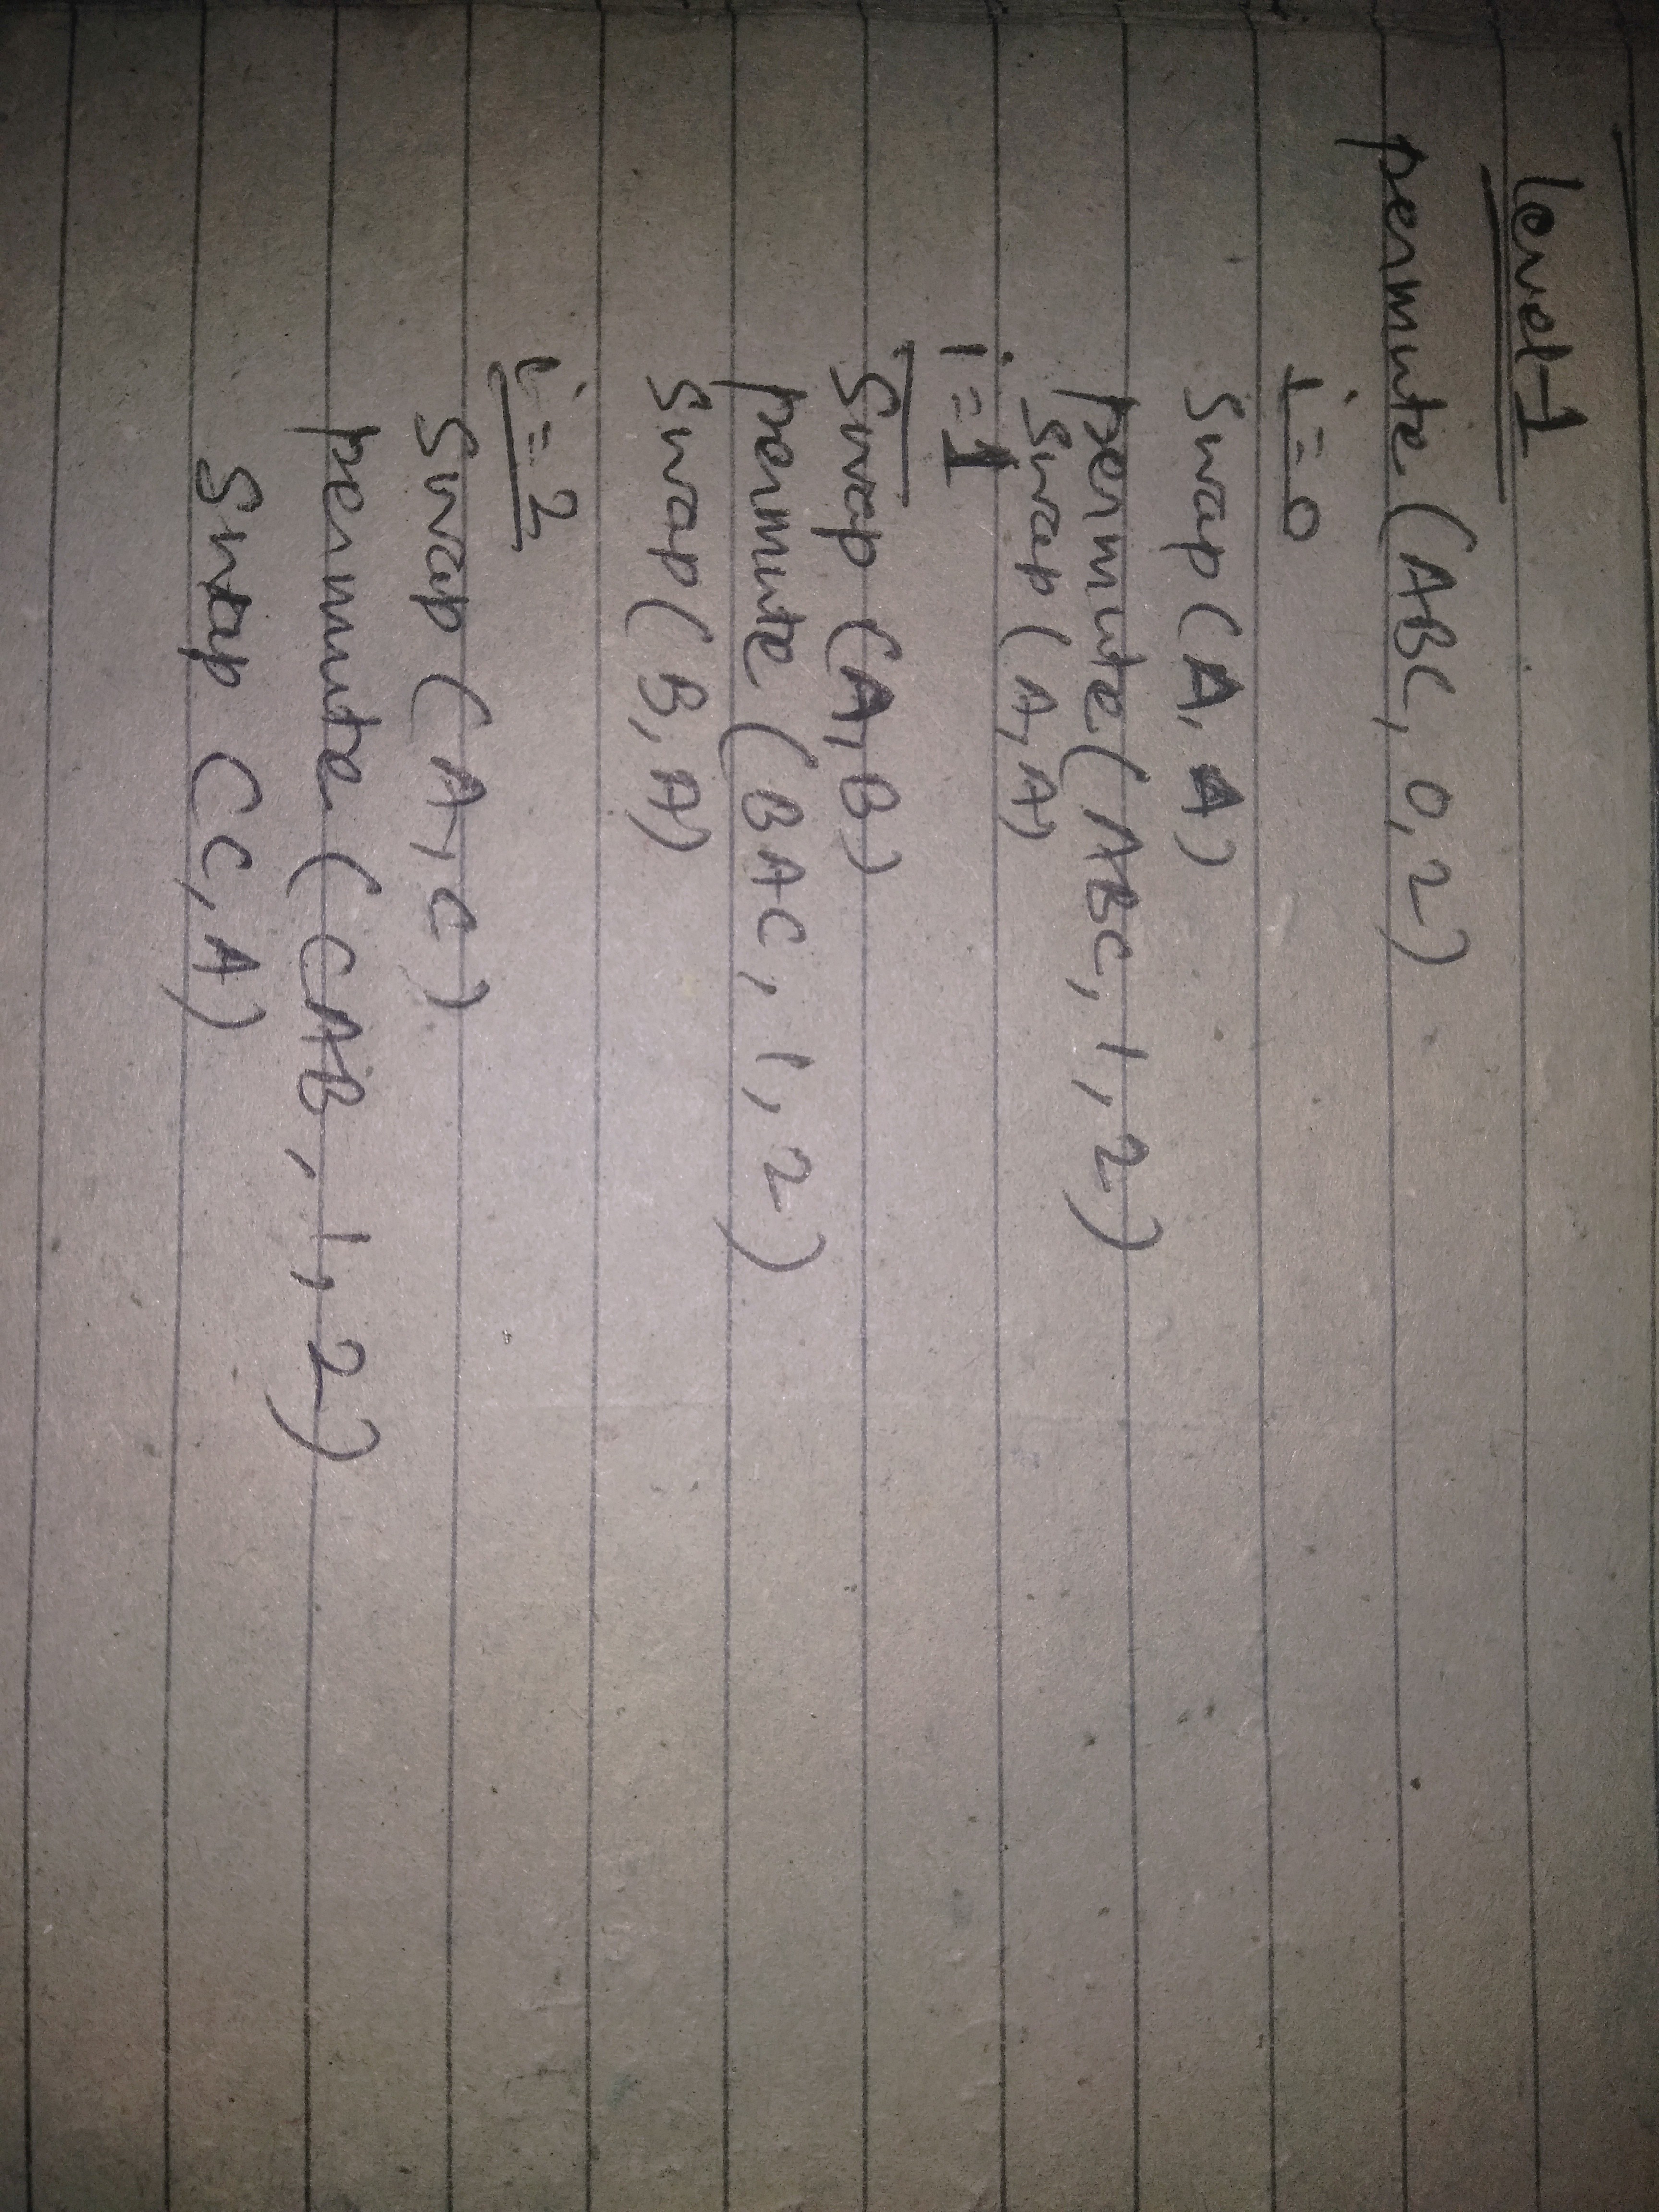 level-1
permute (ABC, 0,2)
i=0
Swap (A, A)
permute (ABC, 1, 2)
Swap (A, A)
i=1
Swap (A, B)
permute (BAC, 1, 2)
Swap (B, A)
i=2
Swap (A, C)
permute (CAB, 1, 2)
Swap (C, A)